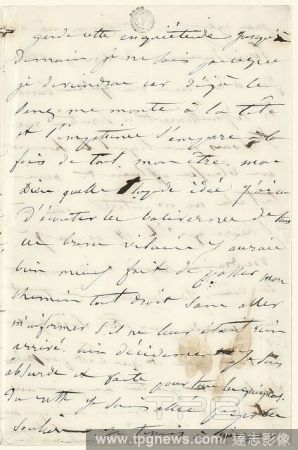 garde cette inquiétude jusqu'à
demain je ne sais pas ce que
je deviendrai car déjà le
sang me monte à la tête
et l'impatience s'empare à la
fois de tout mon être, mon
Dieu quelle stupide idée j'ai eu
D'écouter les balivernes de tous
ces braves j'aurais
bien mieux fait de passer mon
chemin tout droit sans aller
m'informer s'il ne leur était rien
arrivé, bien décidément je suis
absurde et faite pour
Du reste je suis allée
TPG
www.tpgnews.com 達志影像